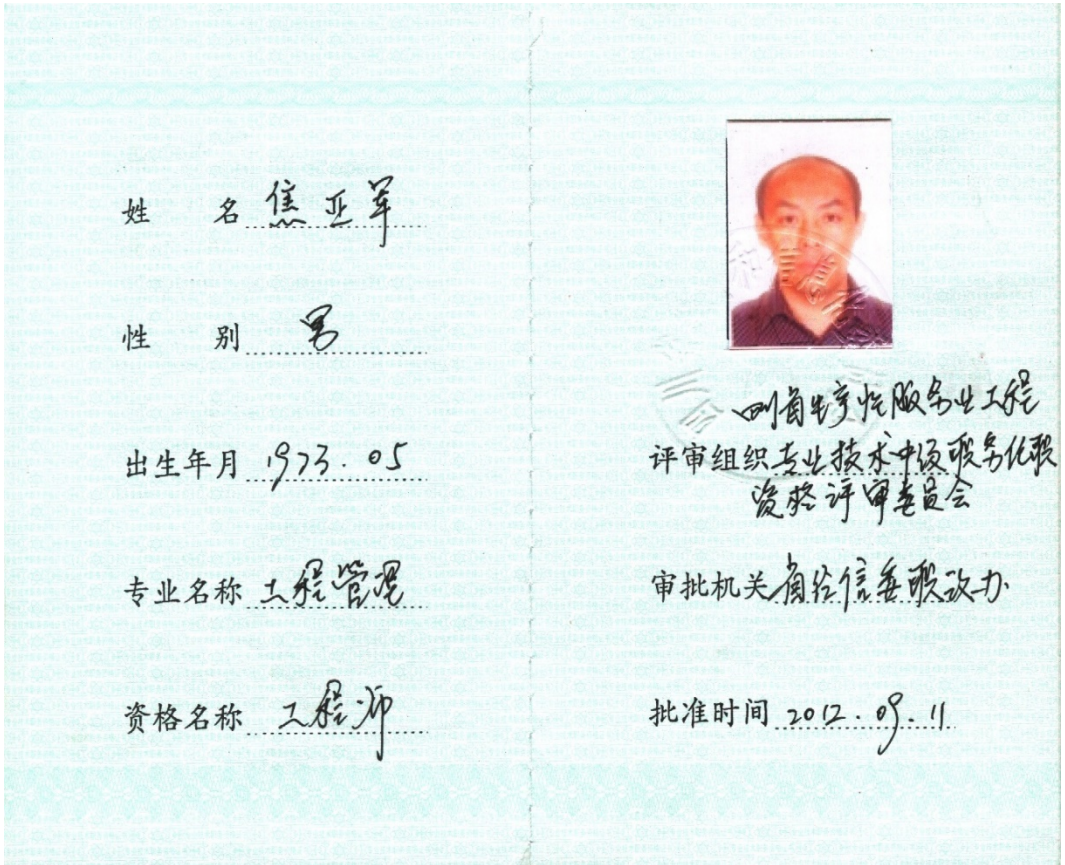 姓 名 焦亚军
性 别 男
出生年月 1973.05
专业名称 工程管理
资格名称 工程师
四川省生产性服务业工程
评审组织 专业技术中级职务任职
资格评审委员会
审批机关 省经信委职改办
批准时间 2012.09.11